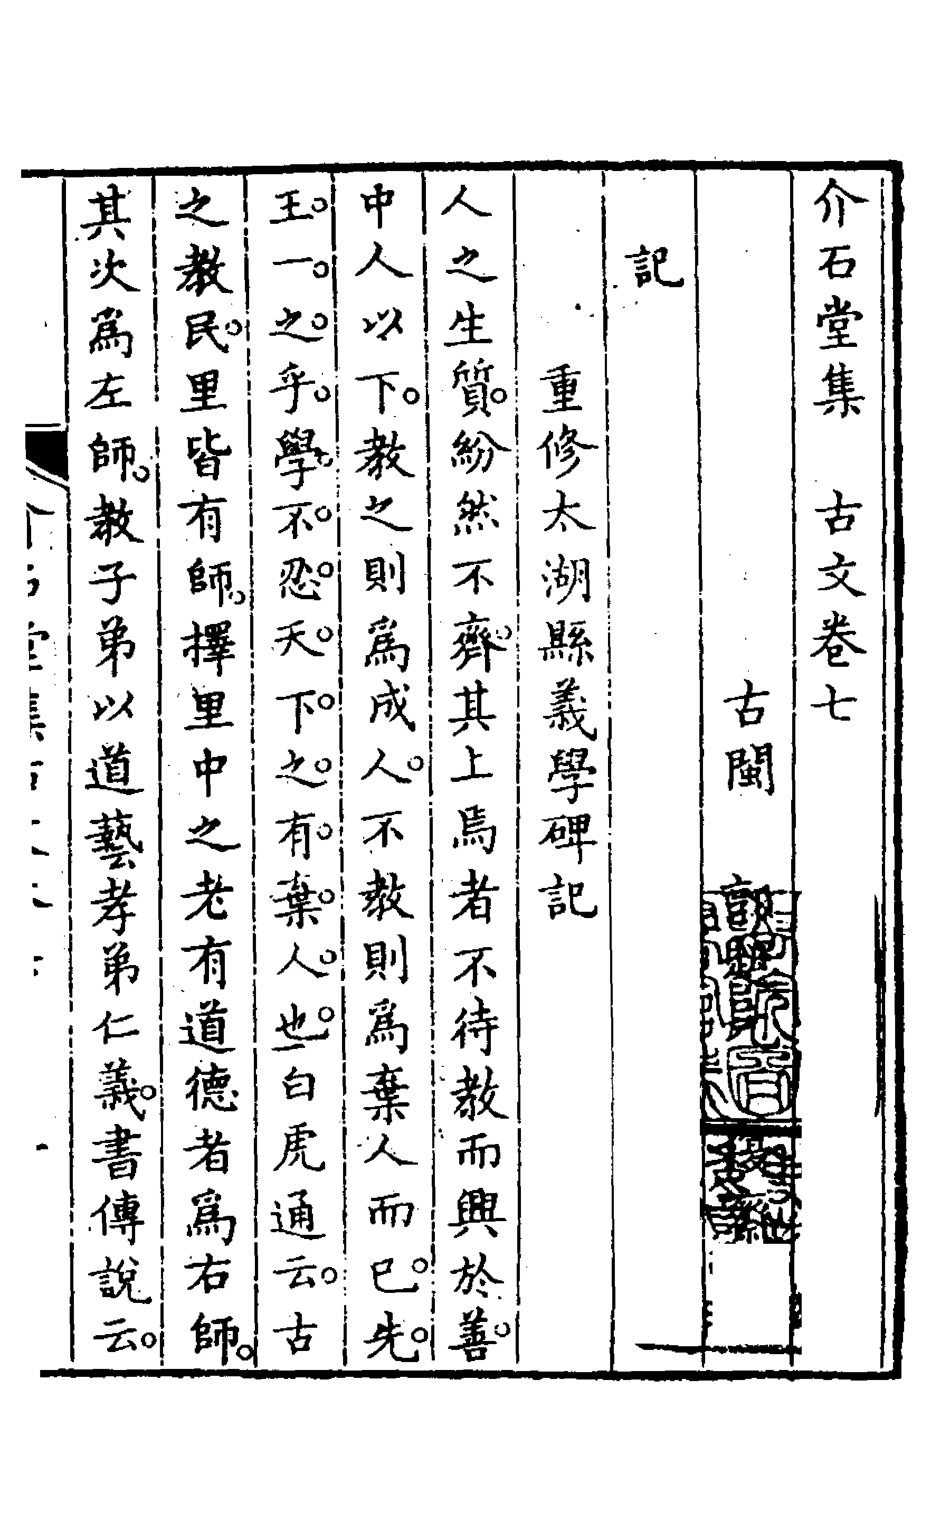 介石堂集　古文卷七
古閩
記
重修太湖縣義學碑記
人之生質。紛然不齊。其上焉者不待教而興於善。
中人以下。教之則為成人。不教則為棄人而已。先。
王。一。之。乎。學。不。忍。天。下。之。有。棄。人。也。白虎通云。古
之教民。里皆有師。擇里中之老有道德者為右師。
其次為左師。教子弟以道藝孝弟仁義。書傳說云。